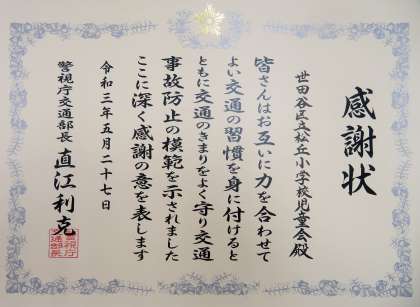 感謝状
世田谷区立松丘小学校児童会殿
皆さんはお互いに力を合わせて
よい交通の習慣を身に付けると
ともに交通のきまりをよく守り交通
事故防止の模範を示されました
ここに深く感謝の意を表します
令和三年五月二十七日
警視庁交通部長 直江利克
警視庁交通部長